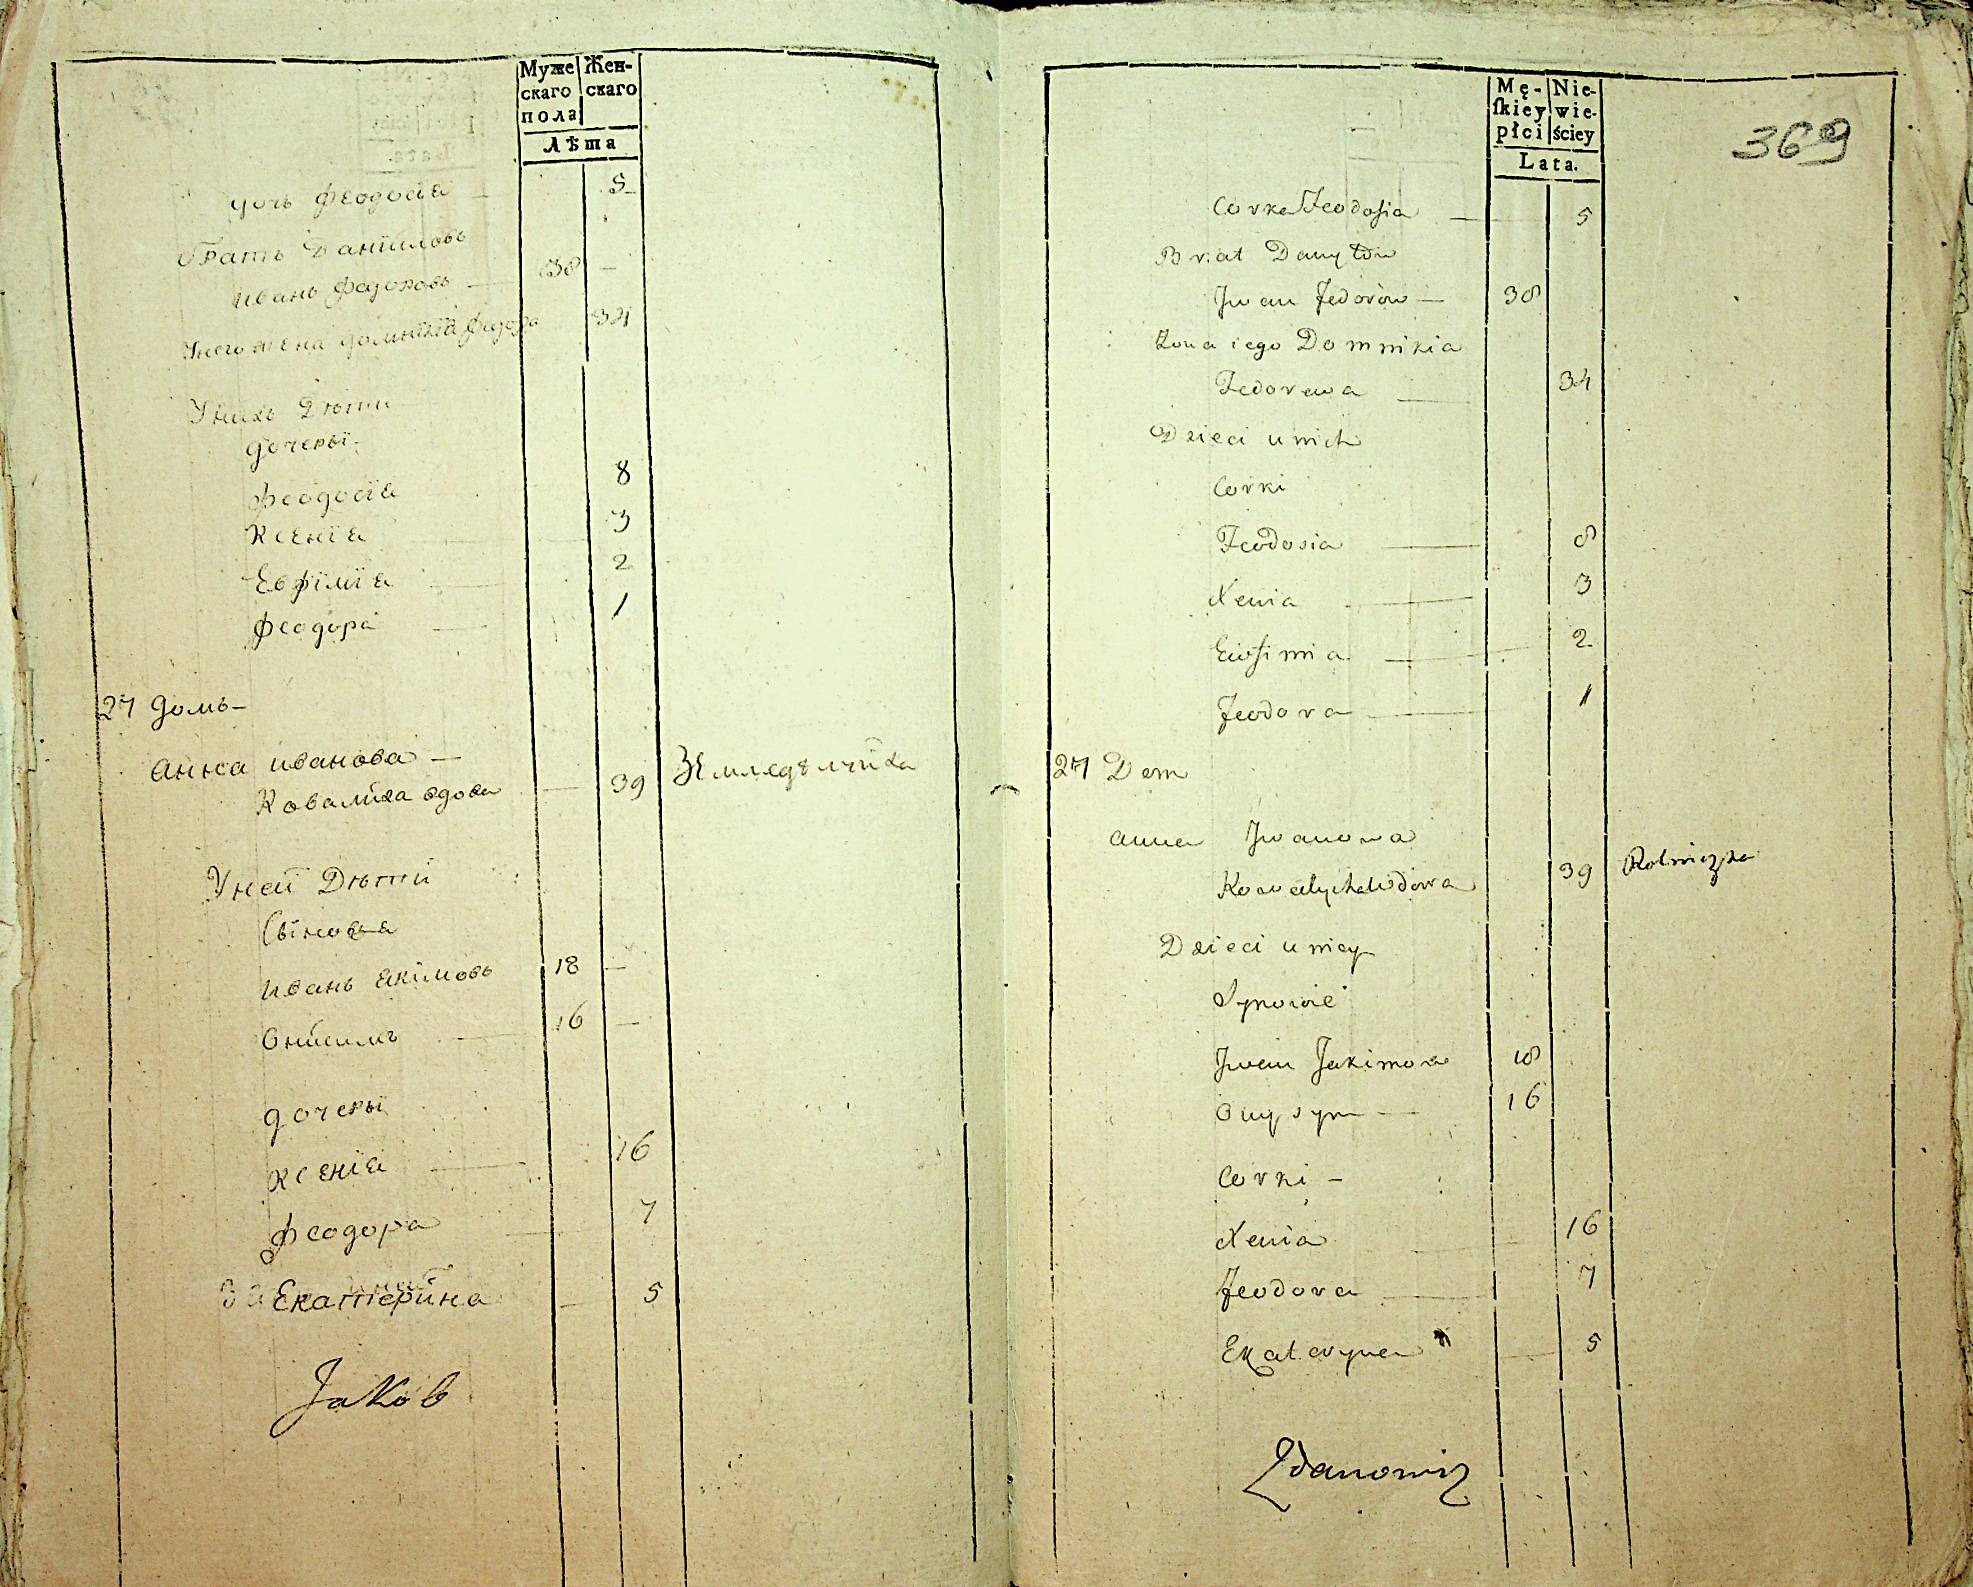 Муже Жен-
скаго скаго
пола
Лѣта
дочь Феодосїа 5
братъ Данїиловъ
Иванъ Федоровъ 38 —
Унего жена Домнїкїа Федора 34
Унихъ Дѣти
дочеры
Феодосїа 8
Ксенїа 3
Евфїмїа 2
Феодора 1
27 домъ —
Анна Иванова —
Ковалиха вдова 39 Земледѣлчиха
Уней Дѣти
Синовья
Иванъ Екїмовъ 18 —
Онисимъ 16 —
дочеры
Ксенїа 16
Феодора 7
Екатерина — 5
Jakób
369
Mę- Nie-
ſkiey wie-
płci ściey
Lata.
Corka Feodosia — 5
Brat Danyłow
Jwan Fedorow — 38
Zona iego Domnikia
Fedorowa — 34
Dzieci u nich
Corki
Feodosia — 8
Xenia — 3
Ewfimia — 2
Feodora — 1
27 Dom
Anna Jwanowa
Kowalycha wdowa 39 Rolniczka
Dzieci u niey
Synowie
Jwan Jakimow 18
Onysym — 16
Corki —
Xenia 16
Feodora — 7
Ekateryna — 5
Zdanowicz